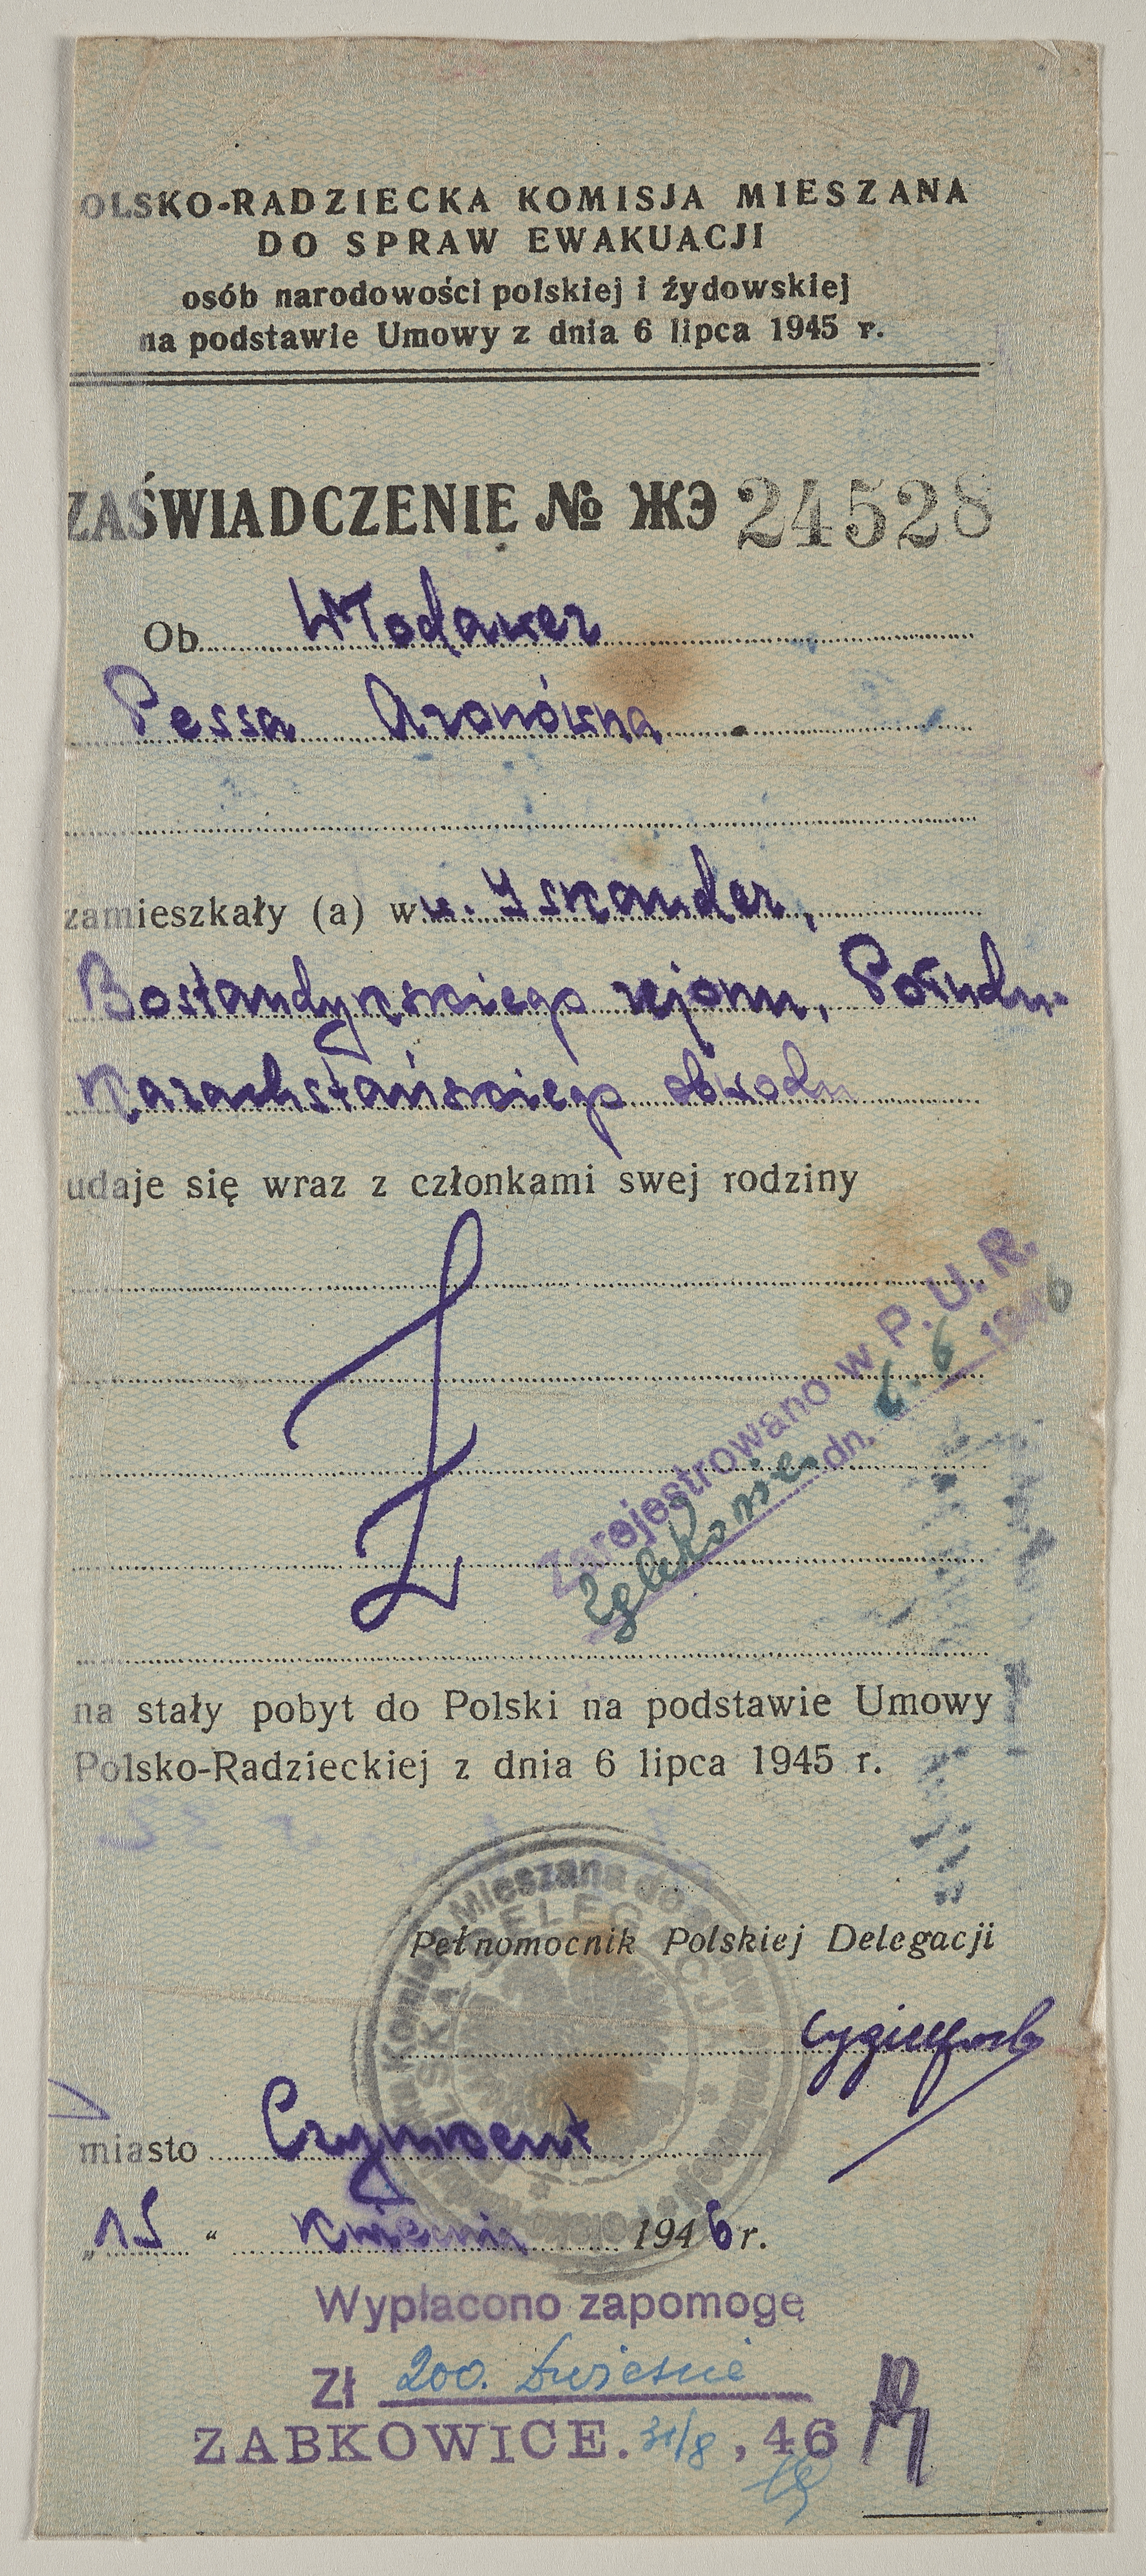 OLSKO-RADZIECKA KOMISJA MIESZANA
DO SPRAW EWAKUACJI
osób narodowości polskiej i żydowskiej
na podstawie Umowy z dnia 6 lipca 1945 r.
ZAŚWIADCZENIE № ЖЭ 24528
Ob. Włodawer
Pessa Aronówna
zamieszkały (a) w u. Iskander,
Bostandykskiego rejonu, Połudn.
Kazachstańskiego obwodu
udaje się wraz z członkami swej rodziny
Z
Zarejestrowano w P. U. R.
dn. 6. 6 1946
na stały pobyt do Polski na podstawie Umowy
Polsko-Radzieckiej z dnia 6 lipca 1945 r.
Komisja Mieszana do Spraw
DELEGACJA
Pełnomocnik Polskiej Delegacji
miasto Czymkent
„15“ kwietnia 1946 r.
Wypłacono zapomogę
Zł 200. dwieście
ZABKOWICE. 31/8, 46